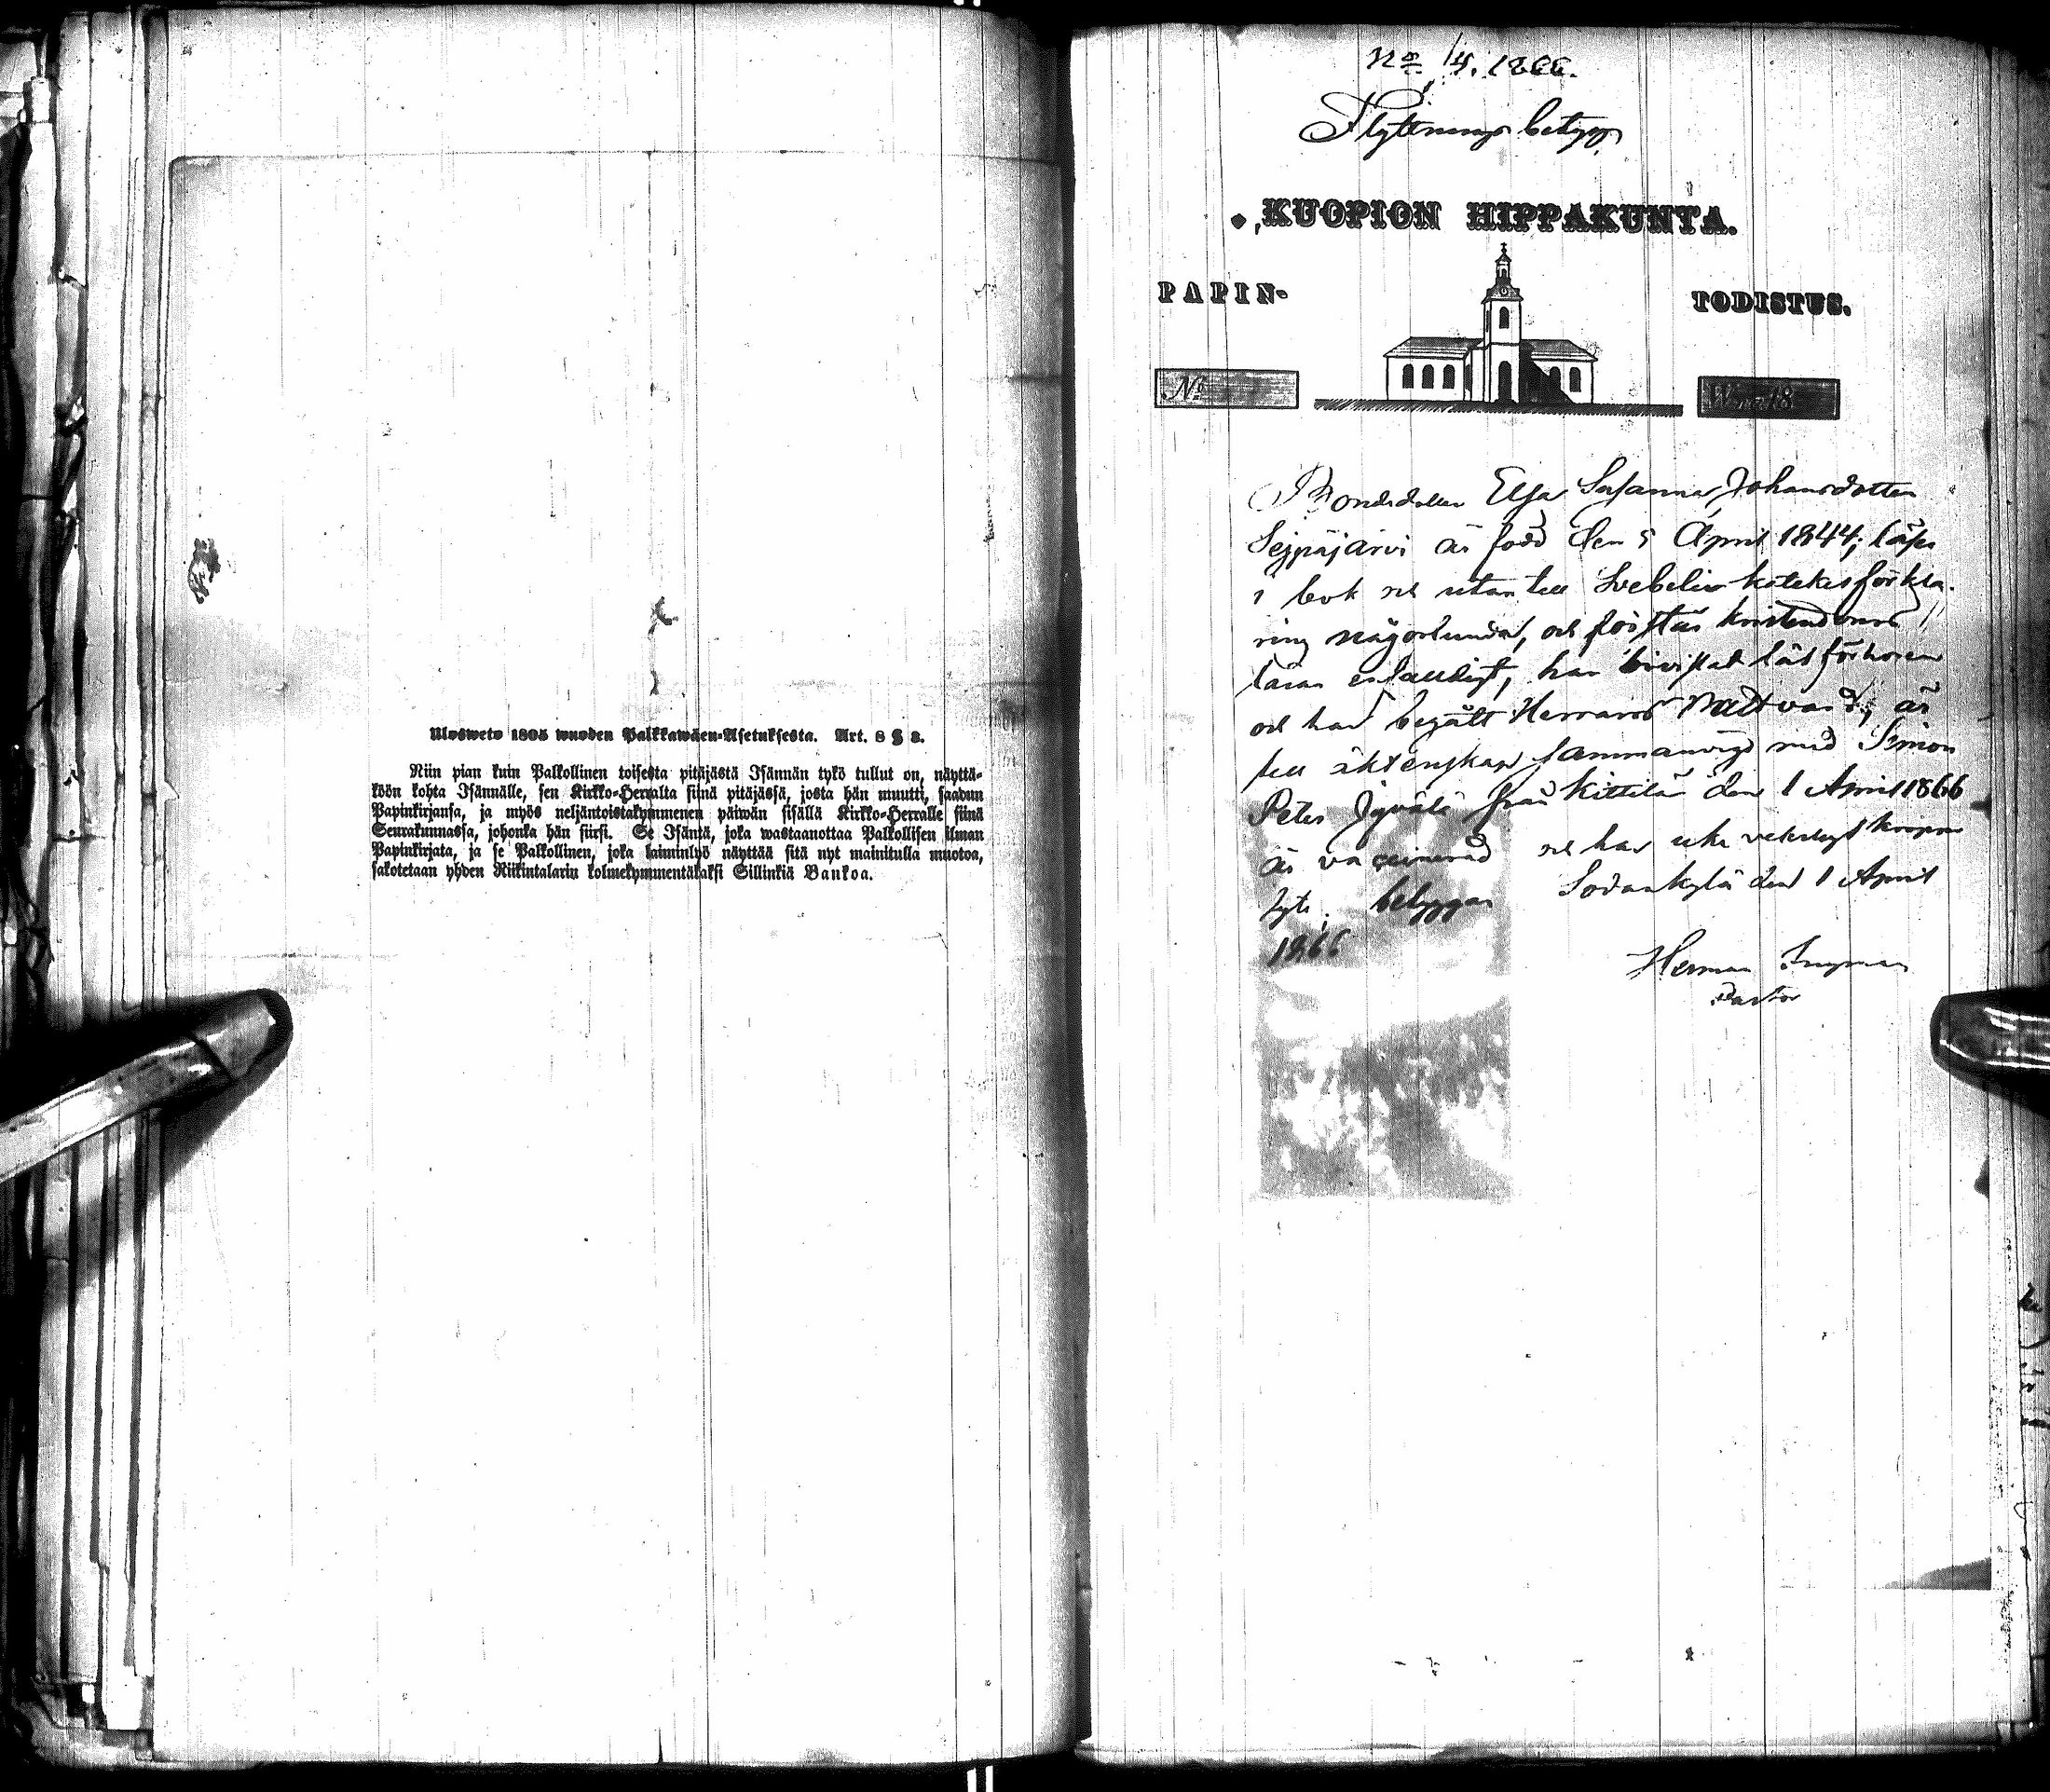 Ulosweto 1805 wuoden Palkkawäen-Asetuksesta. Art. 8 § 3.
Niin pian kuin Palkollinen toisesta pitäjästä Isännän tykö tullut on, näyttä-
köön kohta Isännälle, sen Kirkko-Herralta siinä pitäjässä, josta hän muutti, saadun
Papinkirjansa, ja myös neljäntoistakymmenen päiwän sisällä Kirkko-Herralle siinä
Seurakunnassa, johonka hän siirsi. Se Isäntä, joka wastaanottaa Palkollisen ilman
Papinkirjata, ja se Palkollinen, joka laiminlyö näyttää sitä nyt mainitulla muotoa,
sakotetaan yhden Riikintalarin kolmekymmentäkaksi Sillinkiä Bankoa.
No 14. 1866.
Flyttnings betyg
KUOPION HIPPAKUNTA.
PAPIN- TODISTUS.
No W. 18
Bondedotter Elsa Susanna Johansdotter
Seipäjärvi är född den 5 April 1844; läser
i bok och utan till Svebelii katekesförkla-
ring någorlunda, och förstår kristendoms
läran enfaldigt, har bivistat läsförhören
och har begått Herrans Nattvard, är
till äktenskap sammanvigd med Simon
Peter Jyvälä från Kittilä den 1 April 1866
är vaccinerad och har icke
lyte; betygar Sodankylä den 1 April
1866
Herman Ingman
Pastor